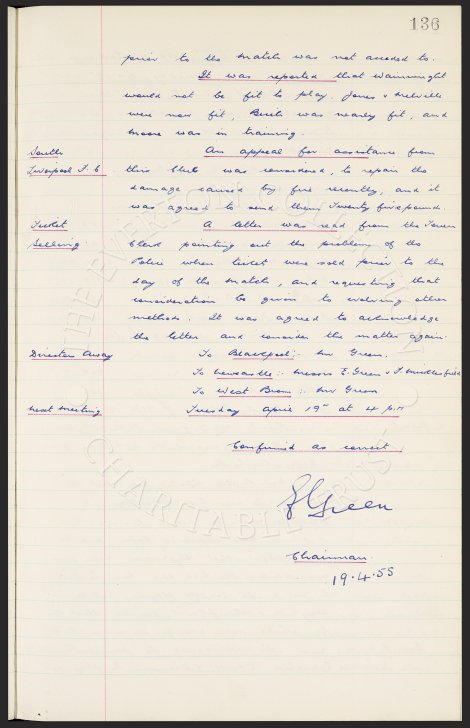 136
prior to the match was not acceded to.
It was reported that Wainwright
would not be fit to play. Jones & Melville
were now fit, Birch was nearly fit, and
Moore was in training.
South An appeal for assistance from
Liverpool F.C this Club was considered, to repair the
damage caused by fire recently, and it
was agreed to send them Twenty five pounds.
Ticket A letter was read from the Town
Selling Clerk pointing out the problem of the
Police when ticket were sold prior to the
day of the match, and requesting that
consideration be given to evolving other
methods. It was agreed to acknowledge
the letter and consider the matter again.
Director Away To Blackpool:- Mr Green.
To Newcastle:- Messrs E. Green &
To West Brom:- Mr Green
Next Meeting Tuesday April 19th at 4 p.m
Confirmed as correct.
Green
Chairman.
19.4.55
THE EVERTON
CHARITABLE TRUST